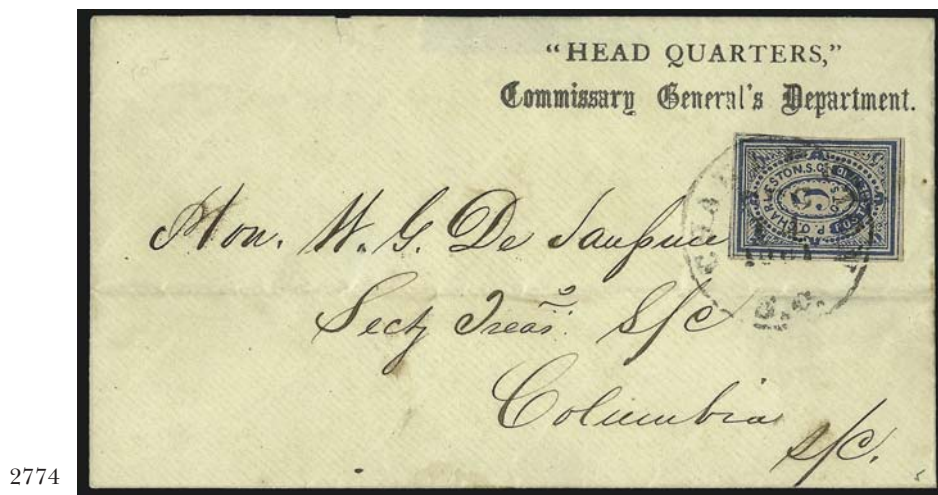 "HEAD QUARTERS,"
Commissary General's Department.
CHARLESTON, S.C.
P.O.
5
1861
S.C.
Hon. W. G. De Saussure
Secty Treas: S/C
Columbia
S/C.
2774